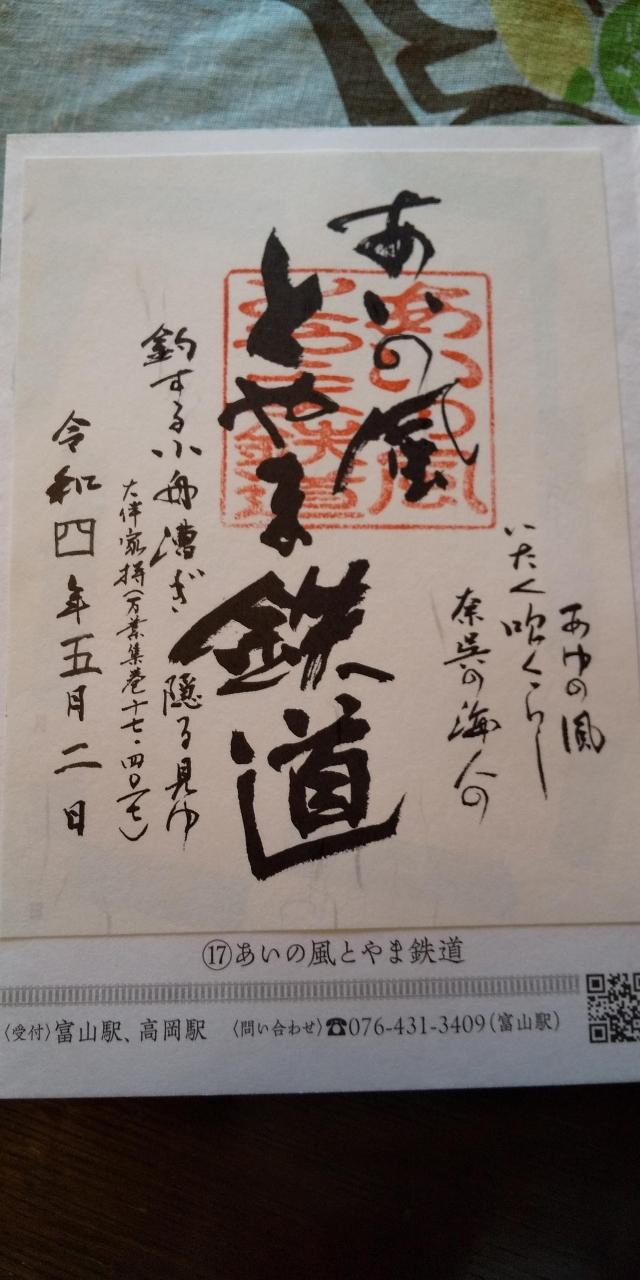 あゆの風
いたく吹くらし
奈呉の海人の
あいの風
とやま鉄道
あいの風
とやま鉄道
釣する小舟漕ぎ 隠る見ゆ
大伴家持(万葉集巻十七・四〇一七)
令和四年五月二日
⑰あいの風とやま鉄道
〈受付〉富山駅、高岡駅 〈問い合わせ〉☎076-431-3409(富山駅)